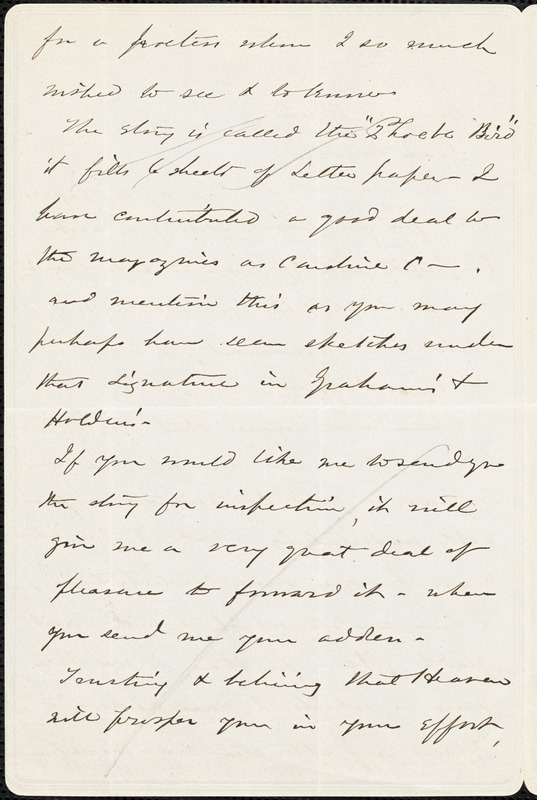 for a                when I so much
wished to see & to know
The story is called the "Phoebe Bird"
it fills 6 sheets of Letter paper - I
have contributed a good deal to
the magazines as Caroline C—.
and mention this as you may
perhaps have seen sketches under
that signature in Graham's &
Holden's -
If you would like me to send you
the story for inspection, it will
give me a very great deal of
pleasure to forward it - when
you send me your address -
Trusting & believing that Heaven
will prosper you in your Effort,